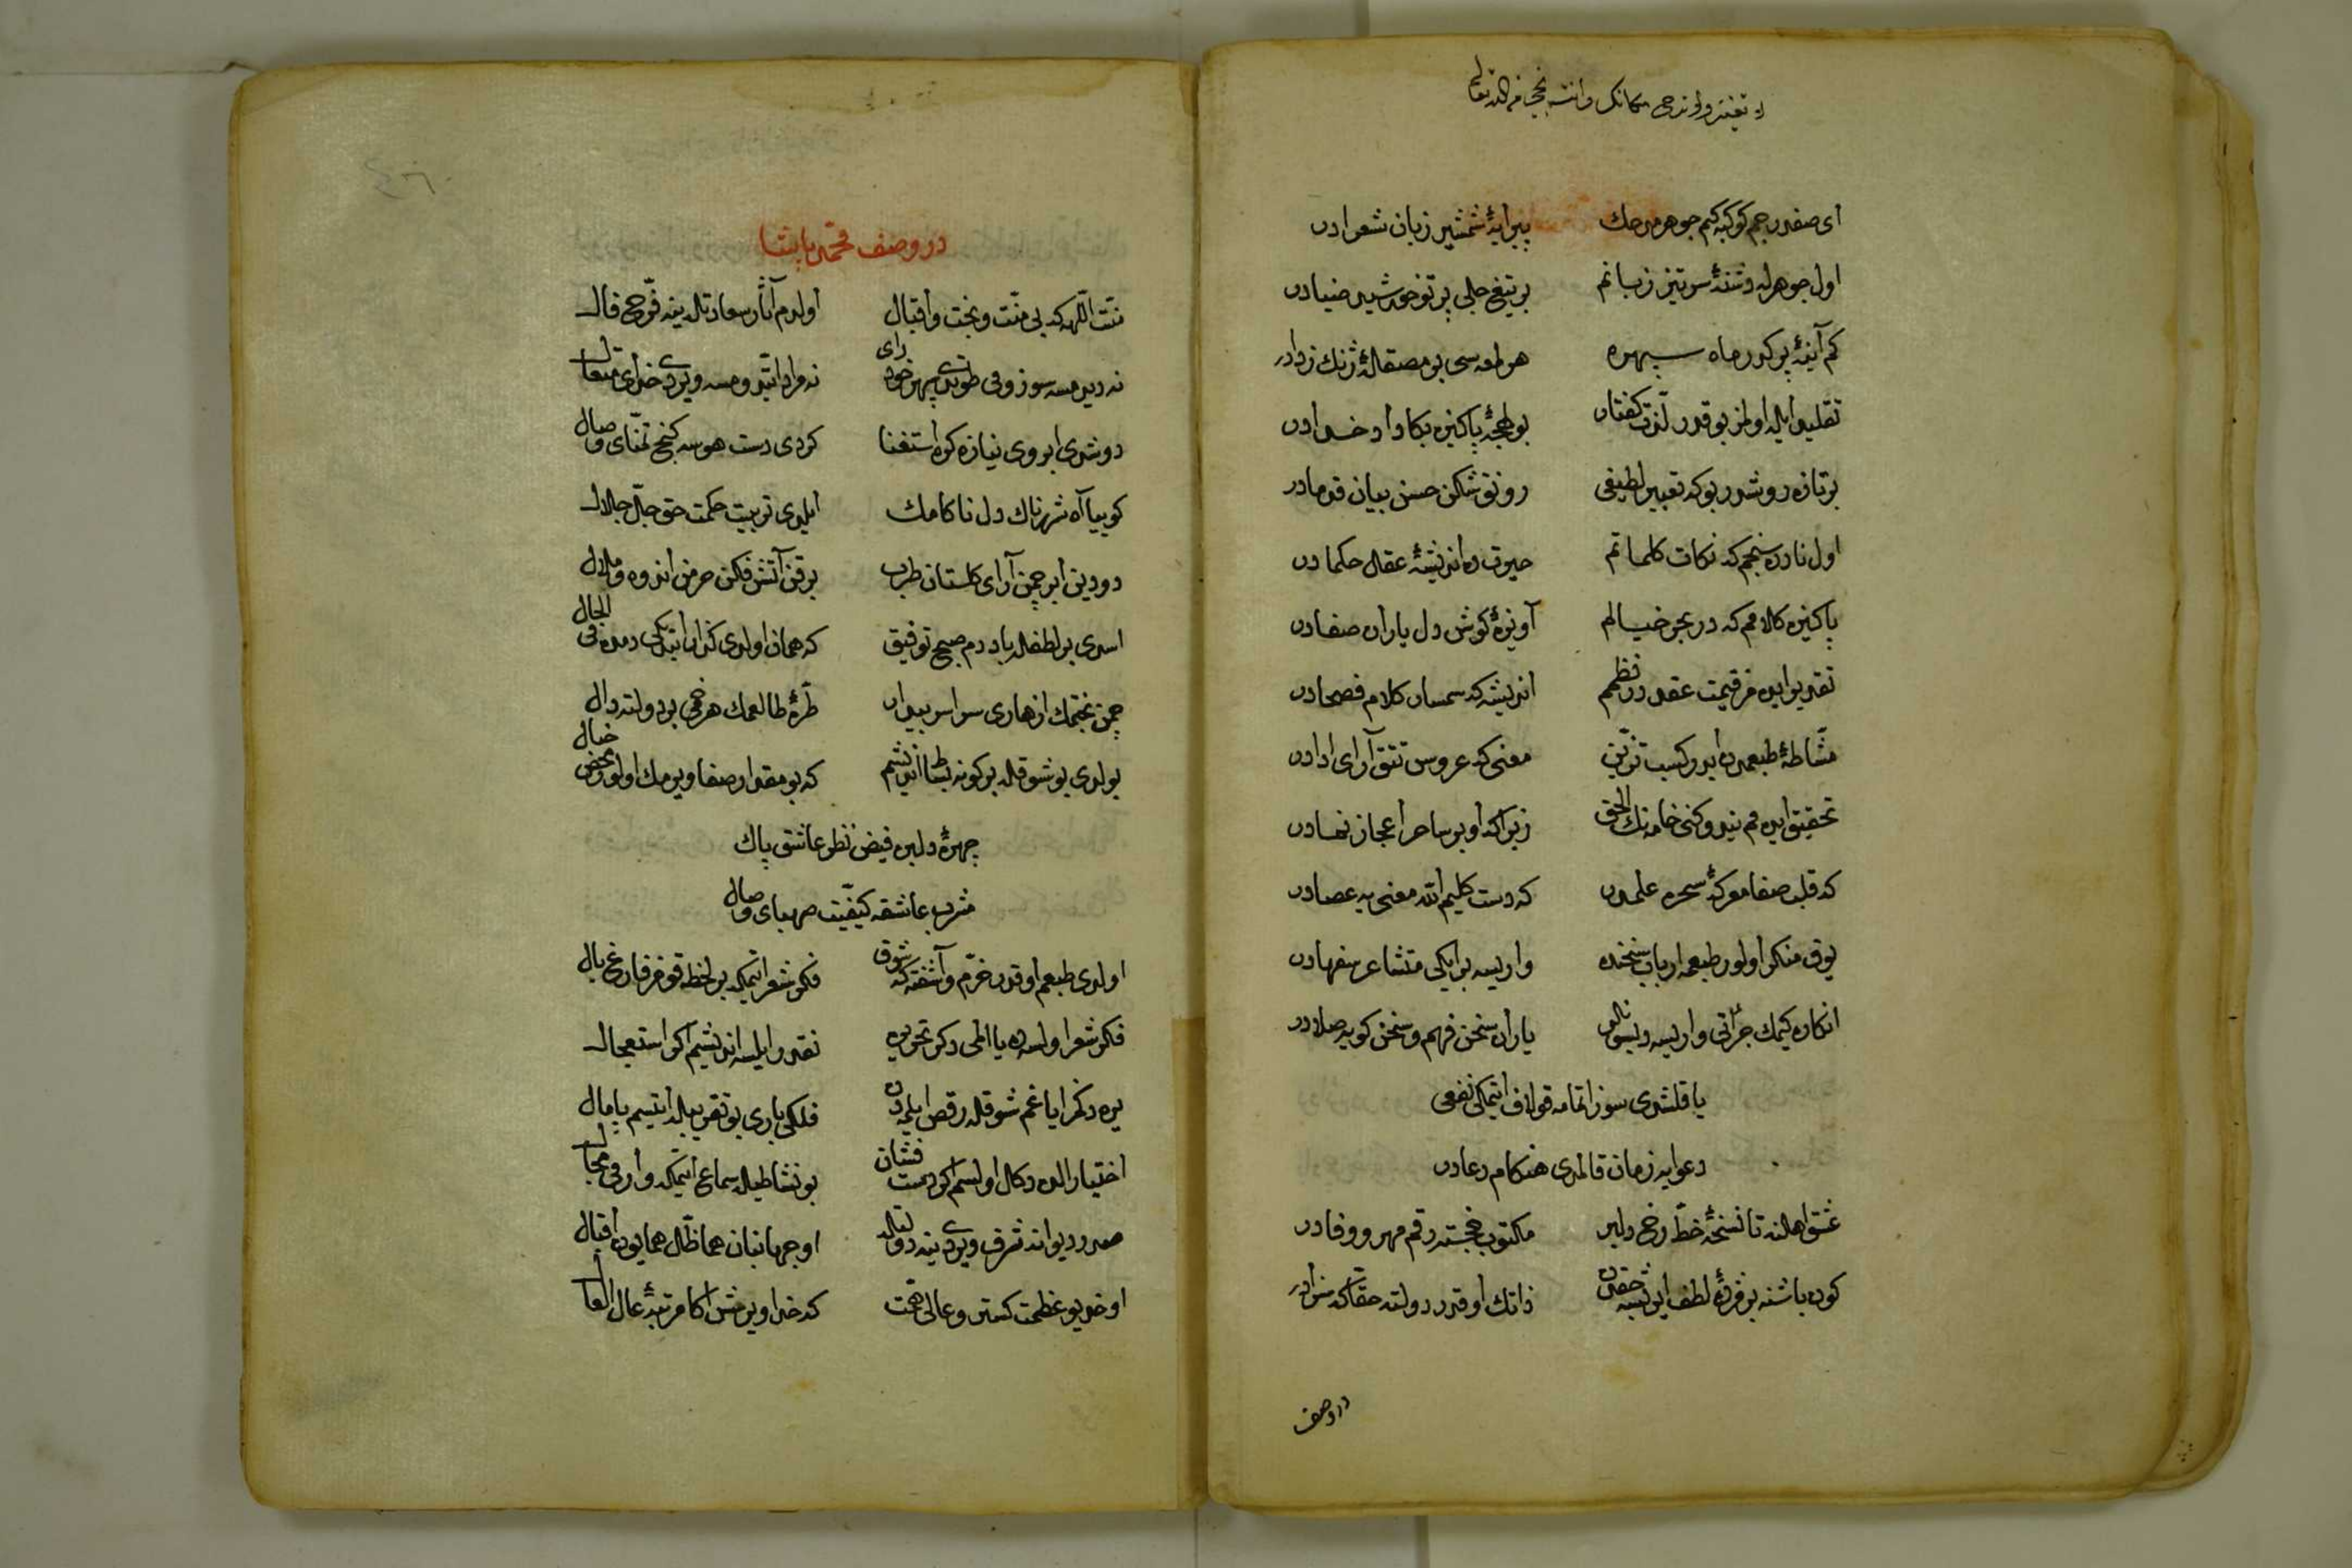 ای صفدر جم کوکبه کم جوهر مدحك پیرایۀ شمشیر زبان شعرادر
اول جوهرله دشنۀ سرتیز زبانم بر تیغ جلی پرتو خورشید ضیادر
کم آینۀ پر کدر ماه سپهره هر لمعه سی بر مصقلۀ ژنك زدادر
تقلید ایله اولمز بو قدر لذت کفتار بو لهجۀ پاکیزه بکا داد خدادر
بر تازه روشدر بو که تعبیر لطیفی رونق شکن حسن بیان قدمادر
اول نادره سنجم که نکات کلماتم حیرت ده اندیشۀ عقل حکمادر
پاکیزه کلامم که در بحر خیالم آویزۀ کوش دل یاران صفادر
تقدیر ایده مز قیمت عقد در نظمم اندیشه که سمسار کلام فصحادر
مشاطۀ طبعمدن ایدر کسب تزین معنی که عروس تتق آرای ادادر
تحقیق ایده مم نیدوکنی خامه نك الحق زیرا که او بر ساحر اعجاز نمادر
که قلب صفا معرکۀ سحره علمدر که دست کلیم الله معنی یه عصادر
یوق منکر اولور طبعمه ارباب سخنده واریسه بر ایکی متشاعر سفهادر
انکاره کیمك جرأتی واریسه دیسون کلسون یاران سخن فهم و سخن کویه صلادر
یاقلشدی سوز اتمامه قو لاف ایتمکی نفعی
دعوایه زمان قالمدی هنکام دعادر
عشق اهلنه تا نسخۀ خط رخ دلبر مکتوب خجسته رقم مهر و وفادر
کون باشنه بر مژدۀ لطف ایریشه حقدن ذاتك او قدر دولته حقا که سزادر
در وصف
در وصف محمد پاشا
منت اللهه که بی منت و بخت و اقبال اولدم آثار سعادتله ینه فرخ فال
نه دیدمسه سوزومی طوتدی سپهر خود رای نه مراد ایتدومسه ویردی خدای متعال
دوشدی ابروی نیازه کره استغنا کردی دست هوسه کنج تمنای وصال
کوییا آه شررناك دل ناکامك ایلدی تربیت حکمت حق جل جلال
دودین ابر چمن آرای کلستان طرب برقن آتش فکن خرمن اندوه و ملال
اسدی بر لطفله باد دم صبح توفیق که همان اولدی کذار ایتدیکی دمده فی الحال
چمن بختمك ازهاری سراسر بیدار طرۀ طالعمك هر خمی بر دولته دال
بولدی بو شوقله بر کونه نشاط اندیشم که بو مقدار صفا ویرمك اولور محض خیال
چهرۀ دلبره فیض نظر عاشق پاك
مشرب عاشقه کیفیت صهبای وصال
اولدی طبعم او قدر خرم و آشفته که شوق فکر شعر ایتمکه بر لحظه قومز فارغ بال
فکر شعر اولسه ده یا المی دکر تحریره نقدر ایلسه اندیشم اکر استعجال
یره دکمز ایاغم شوقله رقص ایلمدن فلکی باری بو تقریبله ایتسم پامال
اختیار الده دکل اولسم اکر دست فشان بو نشاطیله سماع ایتمکه وارمی مجال
صدر دیوانه شرف ویردی ینه دولتله او جهانبان هما ظل همایون اقبال
او خدیو عظمت کستر و عالی همت که خدا ویرمش اکا مرتبۀ عال العال